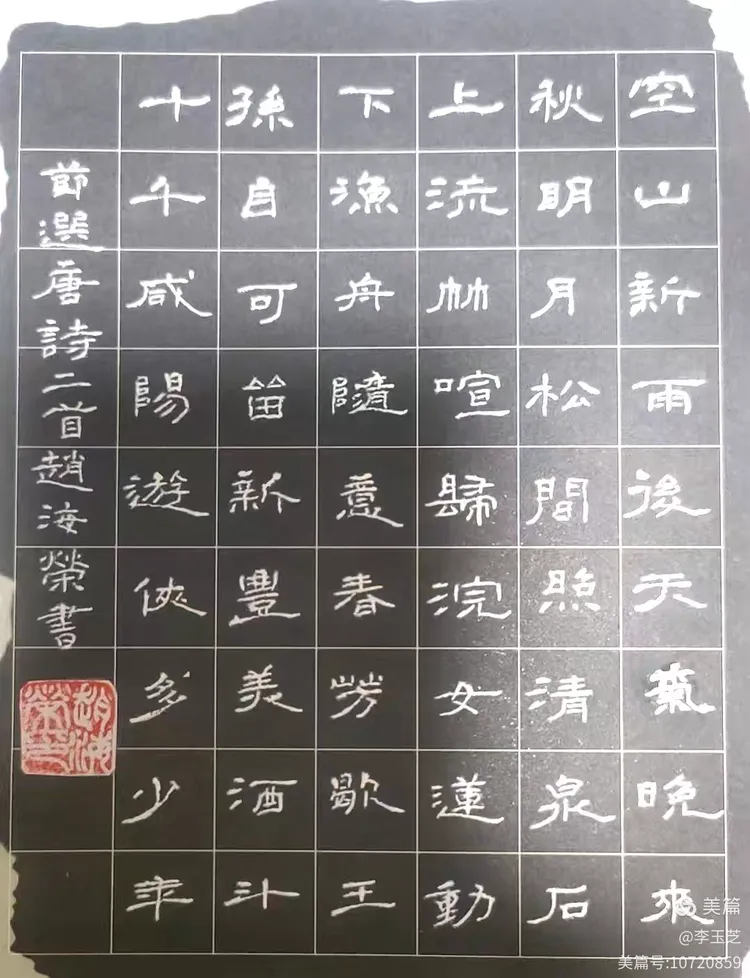 空山新雨後天氣晚來
秋明月松間照清泉石
上流竹喧歸浣女蓮動
下漁舟隨意春芳歇王
孫自可留新豐美酒斗
十千咸陽遊俠多少年
節選唐詩二首趙海榮書
趙海榮印
美篇
@李玉芝
美篇号:10720859